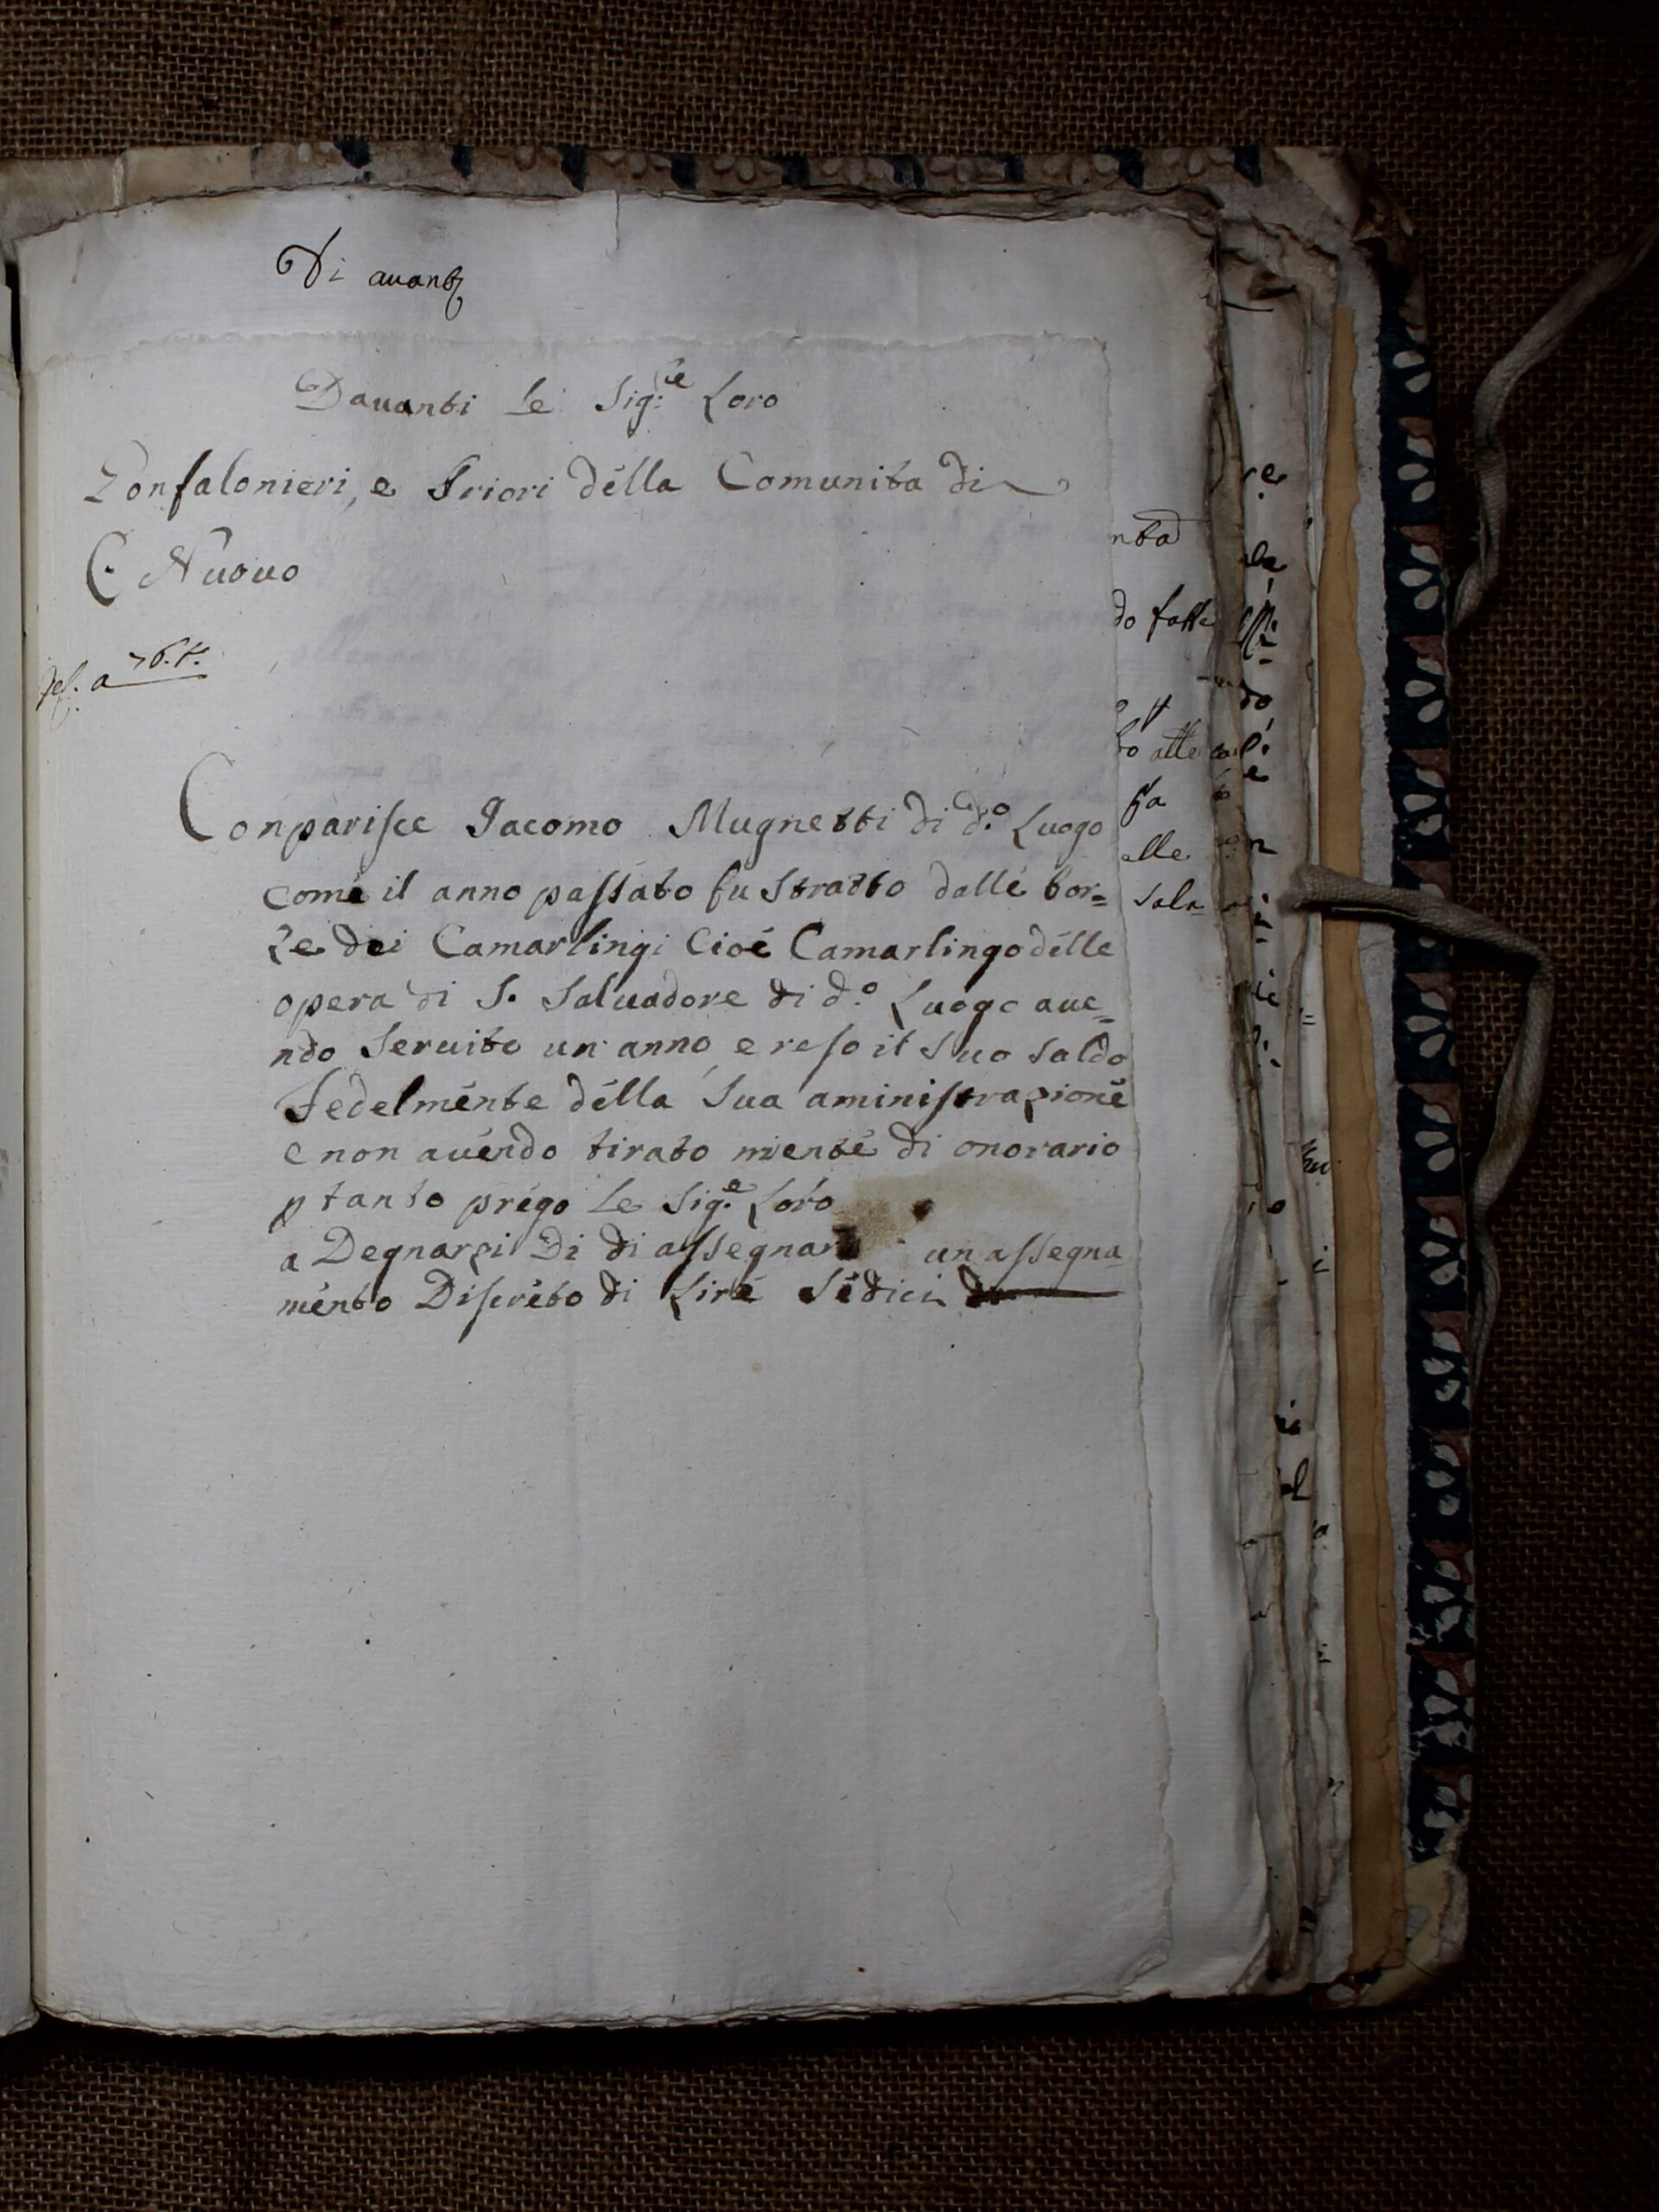 Di auanti
Dauanti Le Sig:rie Loro
Gonfalonieri, e Priori della Comunita di
C. Nuouo
a 76. t.
Conparisce Jacomo Mugnetti di d.o Luogo
come il anno passato fu Stratto dalle bor=
se dei Camarlingi Cioè Camarlingo delle
opera di S. Saluadore di d.o Luogo aue=
ndo Seruito un anno, e reso il Suo Saldo
Fedelmente della Sua aministrazione
e non auendo tirato niente di onorario
p tanto prego Le Sig.e Loro
a Degnarsi Di di assegnare un assegna
mento Discreto di Lire Sedici
nta
do fatte
to alle
alle
Sala